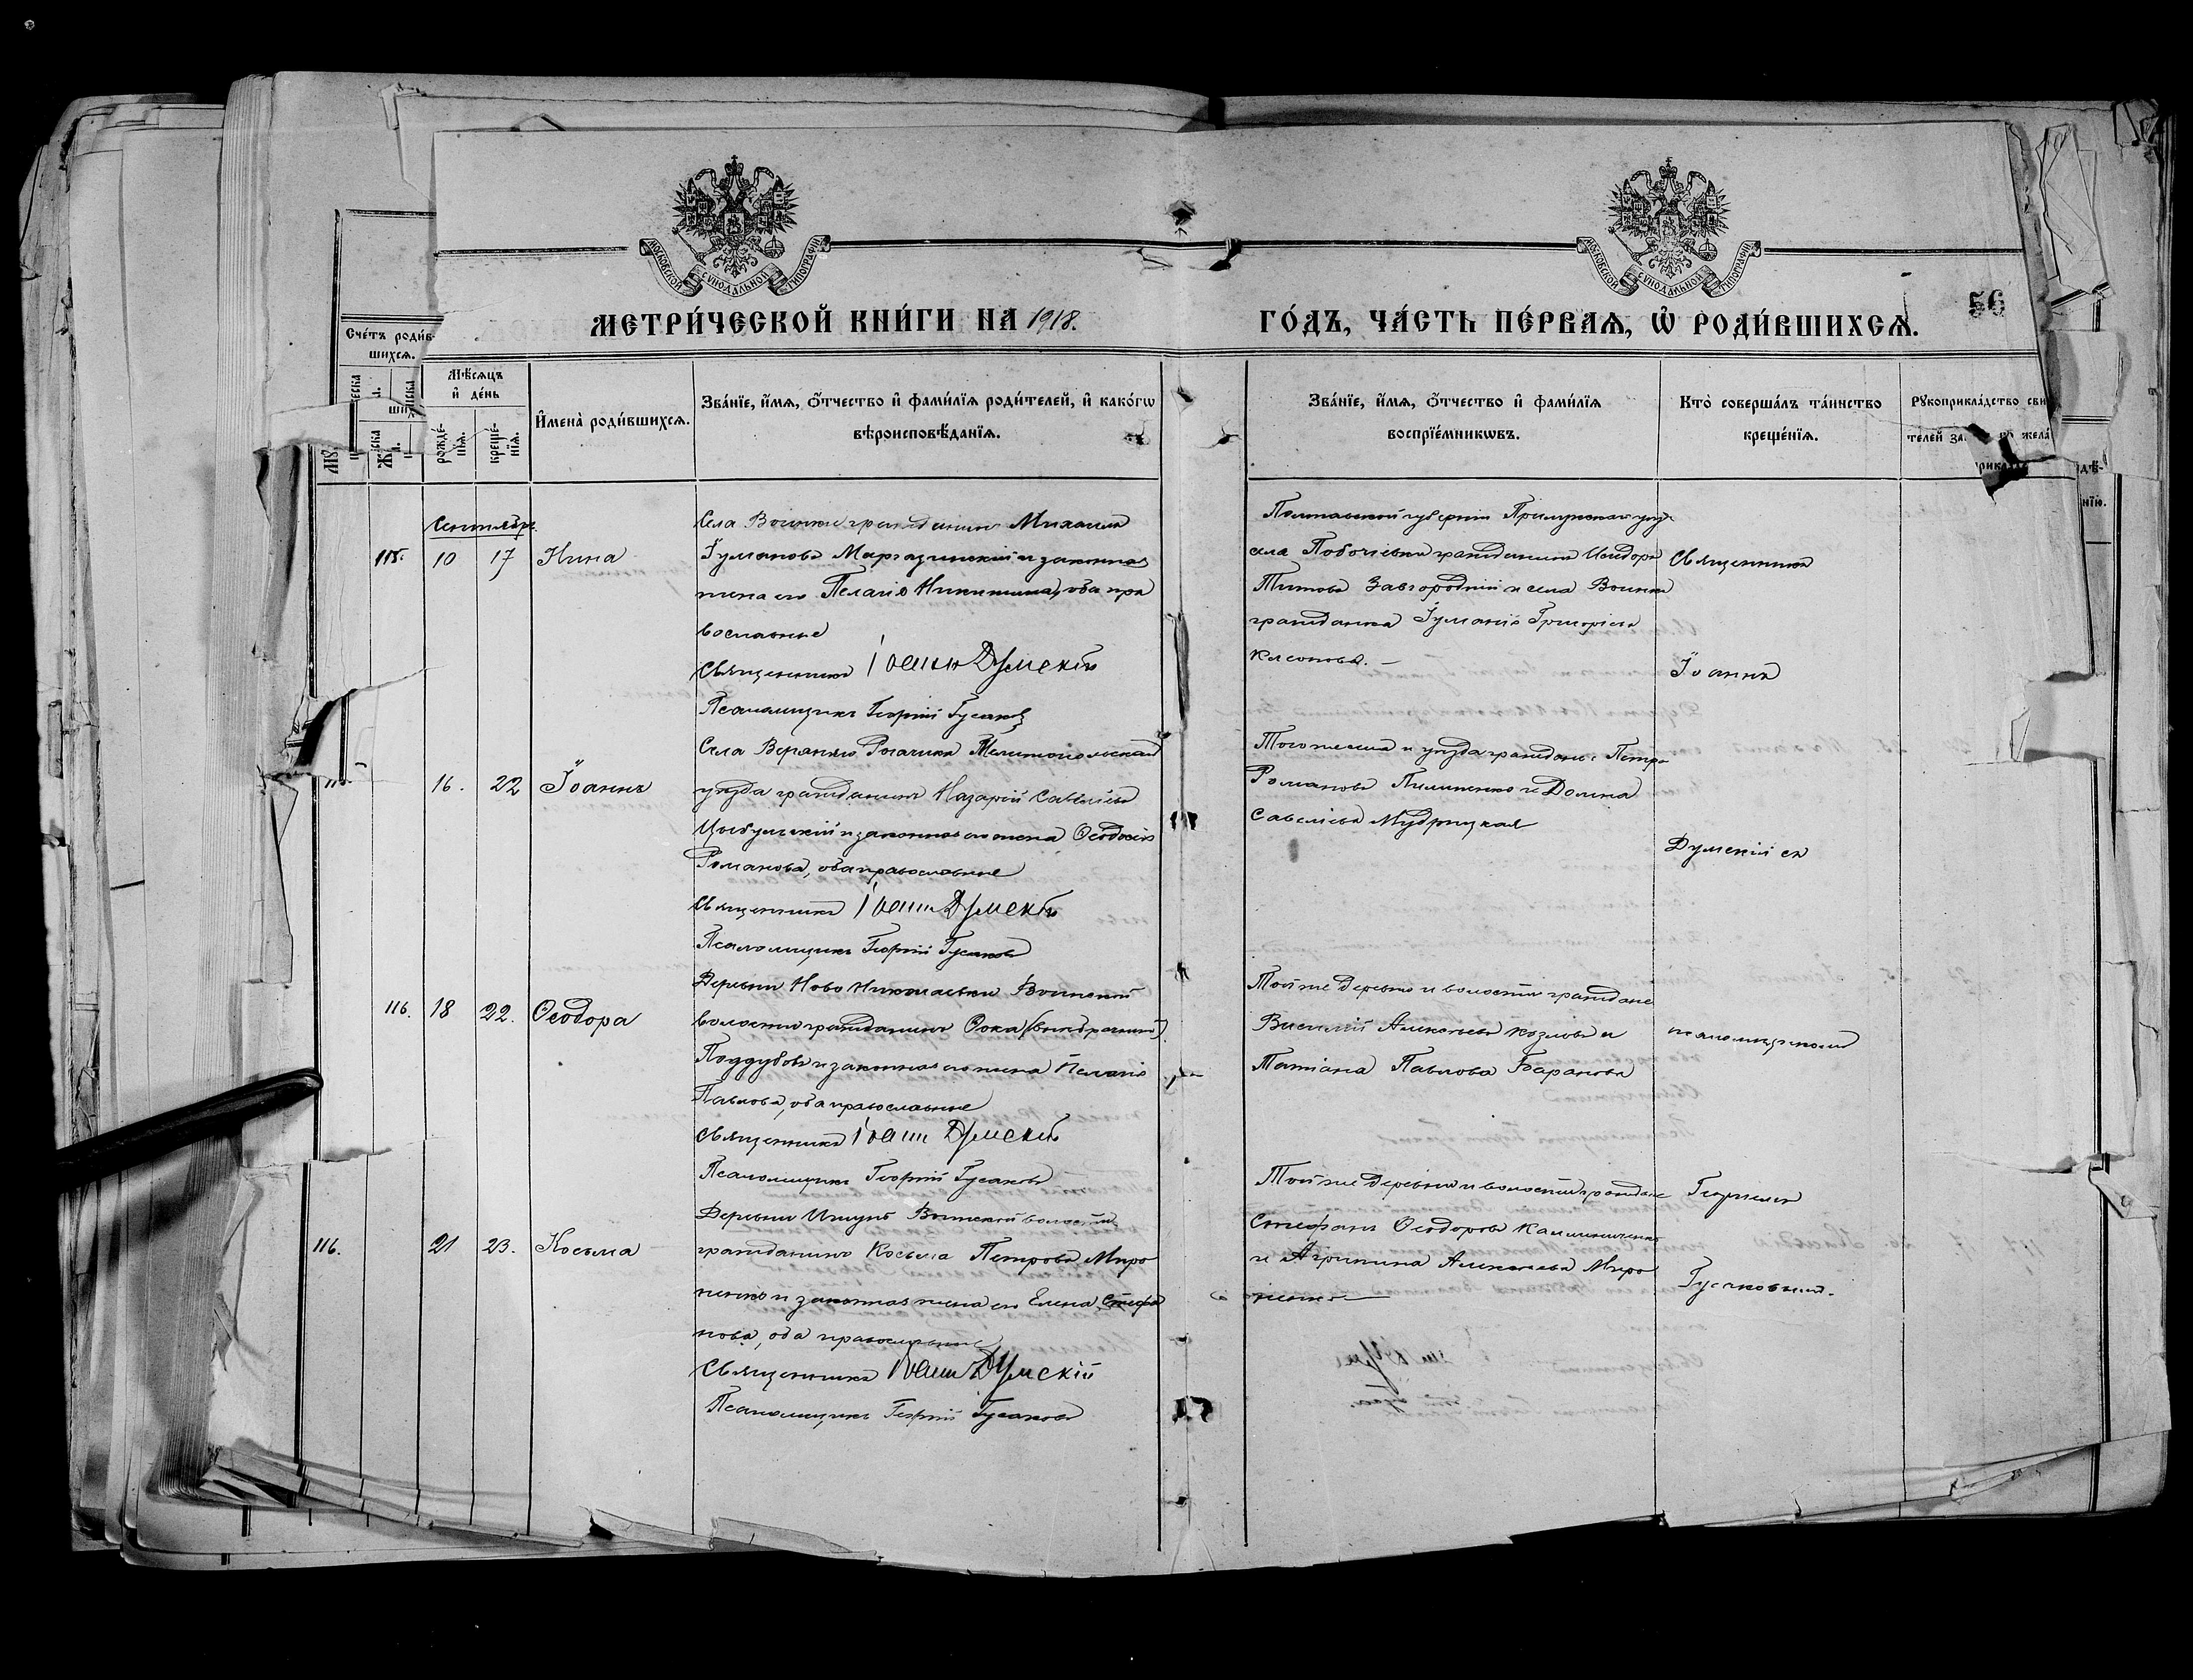 МОСКОВСКОЙ СУНОДАЛЬНОЙ ТИПОГРАФІИ
МОСКОВСКОЙ СУНОДАЛЬНОЙ ТИПОГРАФІИ
МЕТРИ́ЧЕСКОЙ КНИ́ГИ НА 1918.
ГО́ДЪ, ЧА́СТЬ ПЕ́РВАѦ, Ѡ РОДИ́ВШИХСѦ.
56
Сче́тъ роди́в-
шихсѧ.
Мѣ́сѧцъ
и҆ де́нь
рожде́-
нїѧ.
креще́-
нїѧ.
И҆мена̀ роди́вшихсѧ.
Зва́нїе, и҆́мѧ, ѻ҆́тчество и҆ фами́лїѧ роди́телей, и҆ како́гѡ
вѣроисповѣ́данїѧ.
Зва́нїе, и҆́мѧ, ѻ҆́тчество и҆ фами́лїѧ
воспрїе́мникѡвъ.
Кто̀ соверша́лъ та́инство
креще́нїѧ.
Рꙋкоприкла́дство сви
телей
жела́
Сентябрь.
115. 10 17 Нина
Села Воинки гражданинъ Михаилъ
Іулианова и законная
жена его Пелагія Никитина, оба пра
вославные
Священникъ Іоаннъ Думскій
Псаломщикъ Георгій Гусаковъ
Полтавской губерніи Прилукскаго уѣзда
села гражданинъ Исидоръ
Титовъ Завгородній и села Воинки
гражданка Іуліанія Григоріева
Клеопова.
Священникъ
Іоаннъ
Думскій съ
псаломщикомъ
Георгіемъ
Гусаковымъ.
16. 22 Іоаннъ
Села Верхняго Рогачика Мелитопольскаго
уѣзда гражданинъ Назарій Савельевъ
Цыбульскій и законная его жена Ѳеодосія
Романова, оба православные
Священникъ Іоаннъ Думскій
Псаломщикъ Георгій Гусаковъ
Того же села и уѣзда граждане: Петръ
Романовъ Пилипенко и Домна
Савеліева Мудрицкая
116. 18 22. Ѳеодора
Деревни Ново Николаевки Воинской
волости гражданинъ Ѳока
Поддубовъ и законная его жена Пелагія
Павлова, оба православные
Священникъ Іоаннъ Думскій
Псаломщикъ Георгій Гусаковъ
Той же деревни и волости граждане
Василій Алексѣевъ Козловъ и
Татіана Павлова Баранова
116. 21 23. Косьма
Деревни Ишунь Воинской волости
гражданинъ Косьма Петровъ Миро
ненко и законная жена его Елена Стефа
нова, оба православные
Священникъ Іоаннъ Думскій
Псаломщикъ Георгій Гусаковъ
Той же деревни и волости граждане
Стефанъ Ѳеодоровъ Калиниченко
и Агрипина Алексѣева Миро
ненко